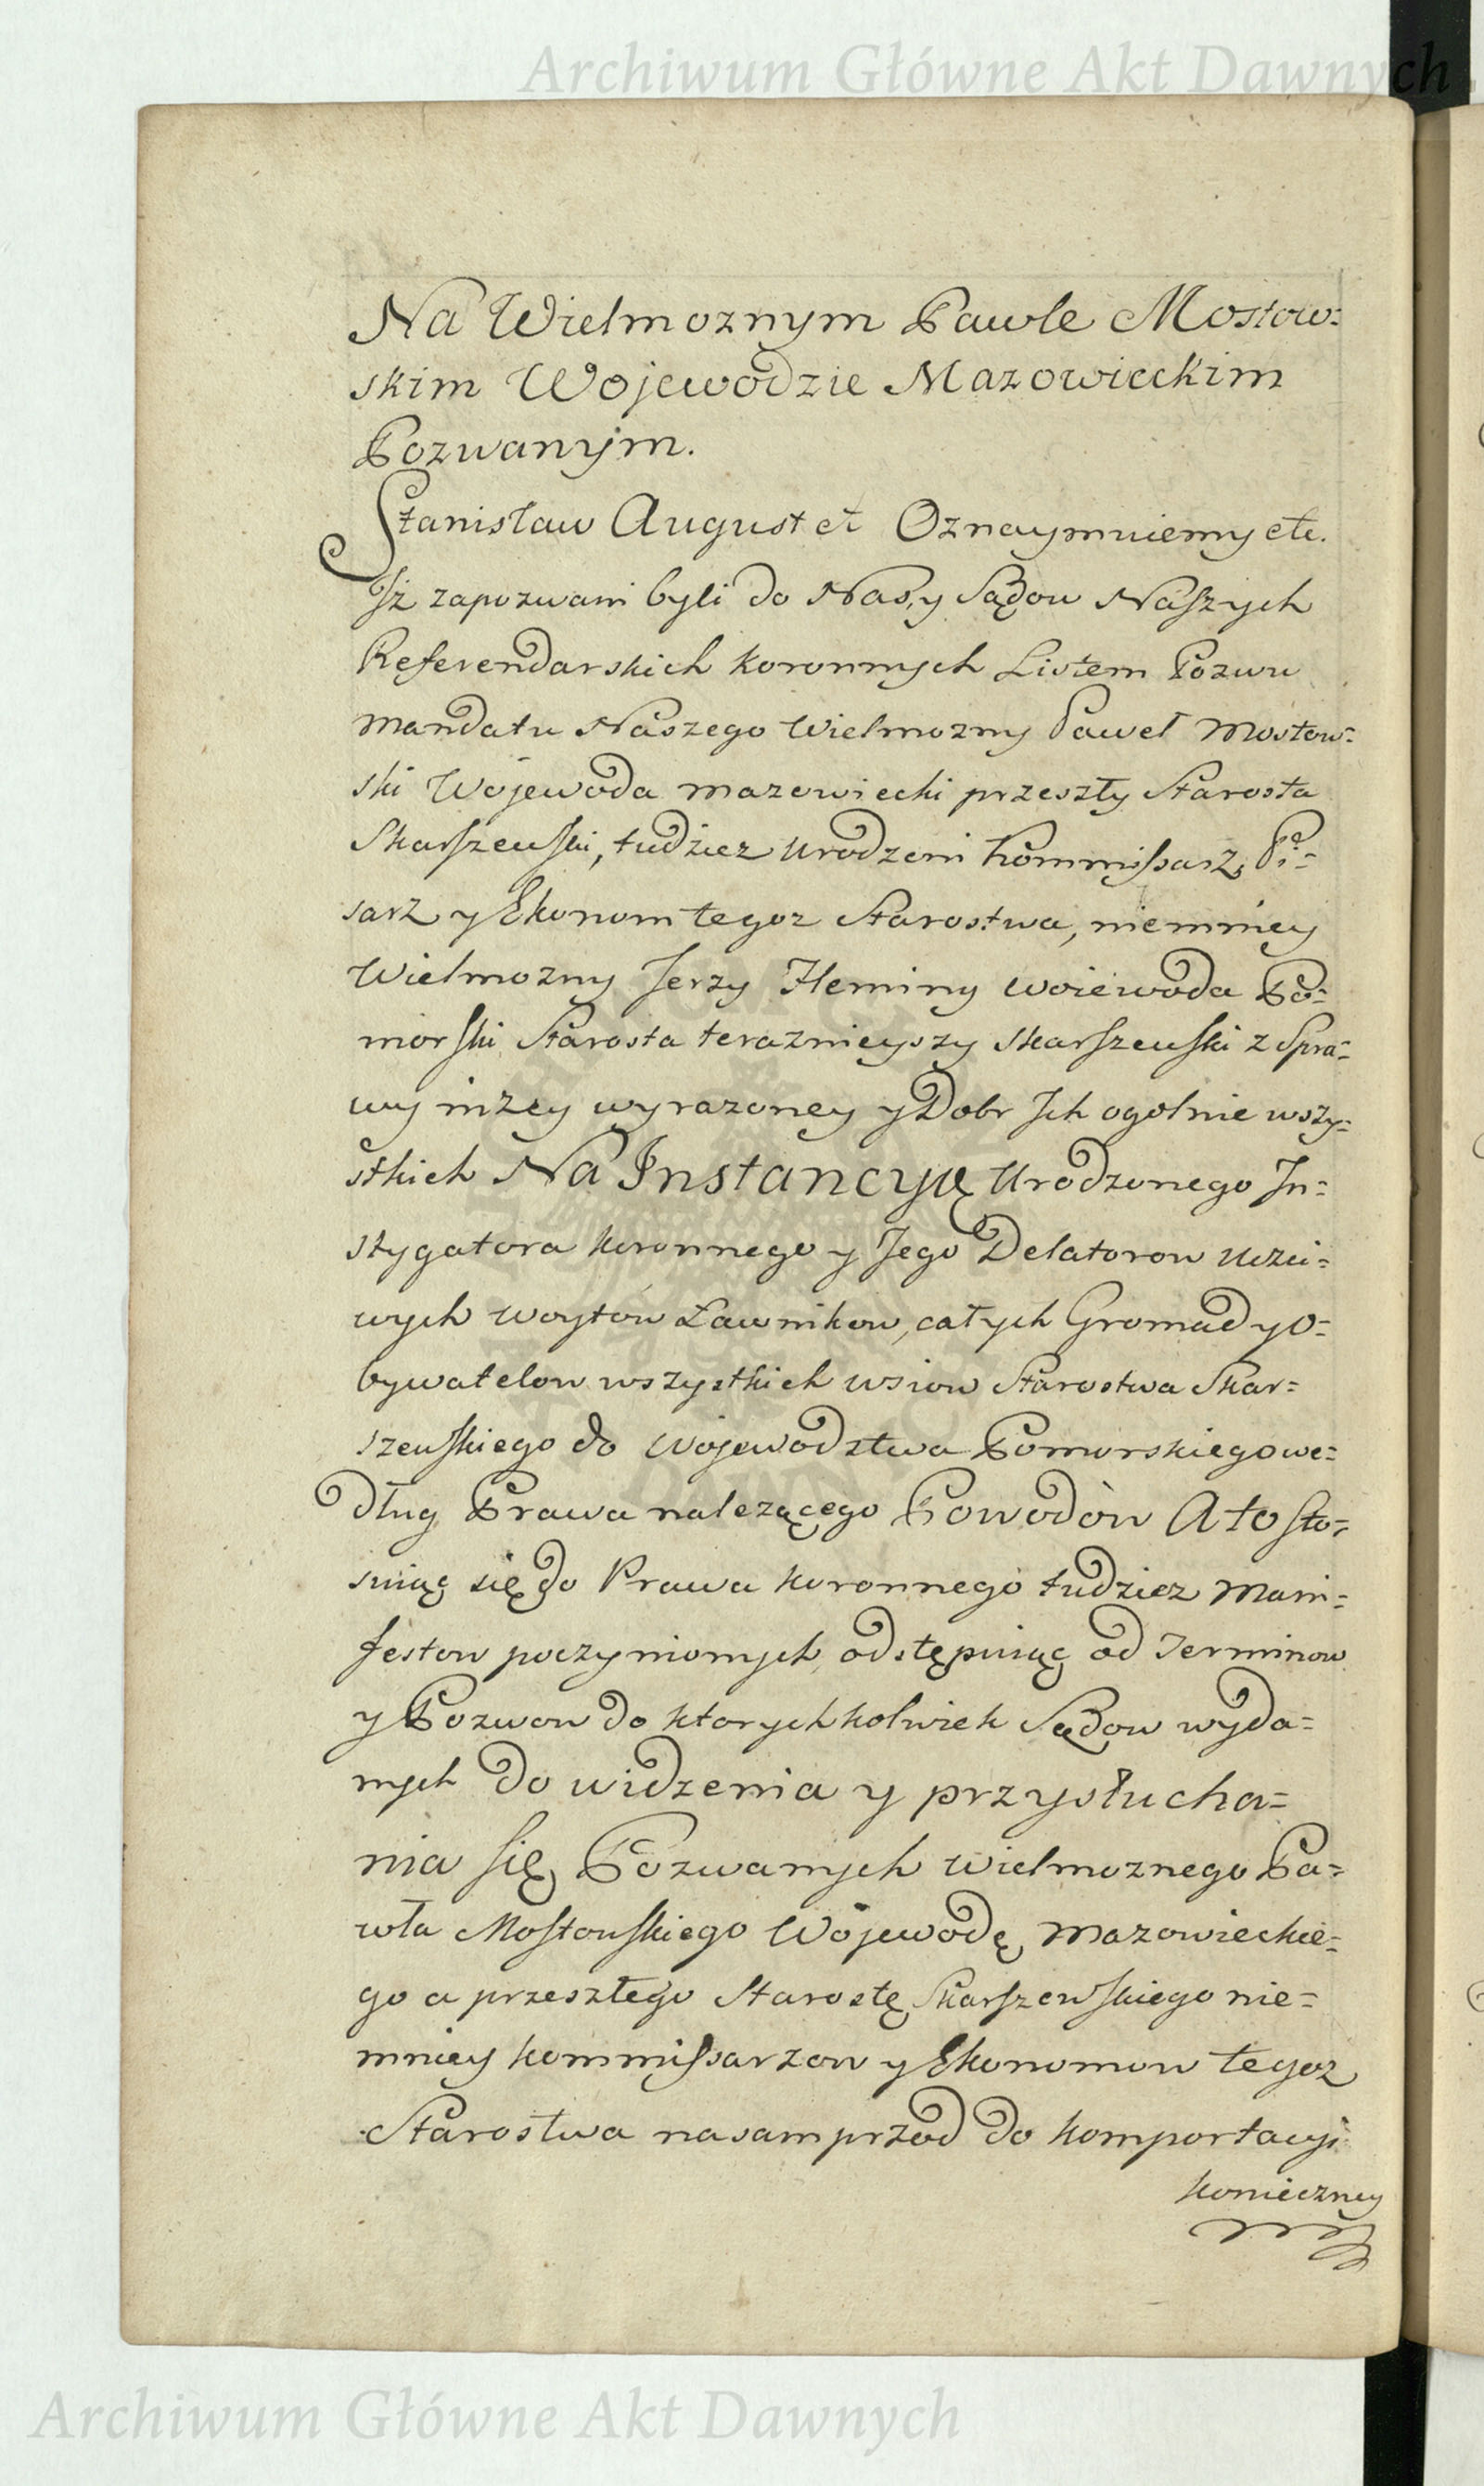 Archiwum Główne Akt Dawnych
Na Wielmoznym Pawle Mostow=
skim Wojewodzie Mazowieckim
Pozwanym.
Stanisław August et Oznaymuiemy etc.
Jż zapozwani byli do Nas, y Sądow Naszych
Referendarskich Koronnych Listem Pozwu
Mandatu Naszego Wielmozny Paweł Mostow=
ski Wojewoda Mazowiecki przeszły Starosta
Skarszewski, tudziez Urodzeni Kommissarz, Pi=
sarz y Ekonom tegoz Starostwa, niemniey
Wielmozny Jerzy Fleming Woiewoda Po=
morski Starosta teraznieyszy Skarszewski z Spra=
wy niżey wyrazoney y Dobr Jch ogolnie wszy=
stkich Na Jnstancyią Urodzonego Jn=
stygatora Koronnego y Jego Delatorow Uczci=
wych Woytow Ławnikow, całych Gromad y O=
bywatelow wszystkich wsiow Starostwa Skar=
szewskiego do Wojewodztwa Pomorskiego we=
dług Prawa nalezącego Powodòw A to sto=
suiąc się do Prawa Koronnego tudziez Mani=
festow poczynionych, odstępuiąc od Terminow
y Pozwow do ktorychkolwiek Sądow wyda=
nych do widzenia y przysłucha=
nia się Pozwanych Wielmoznego Pa=
wła Mostowskiego Wojewodę Mazowieckie=
go a przeszłego Starostę Skarszewskiego nie=
mniey Kommissarzow y Ekonomow tegoz
Starostwa nasamprzod do Komportacyi
Konieczney
Archiwum Główne Akt Dawnych